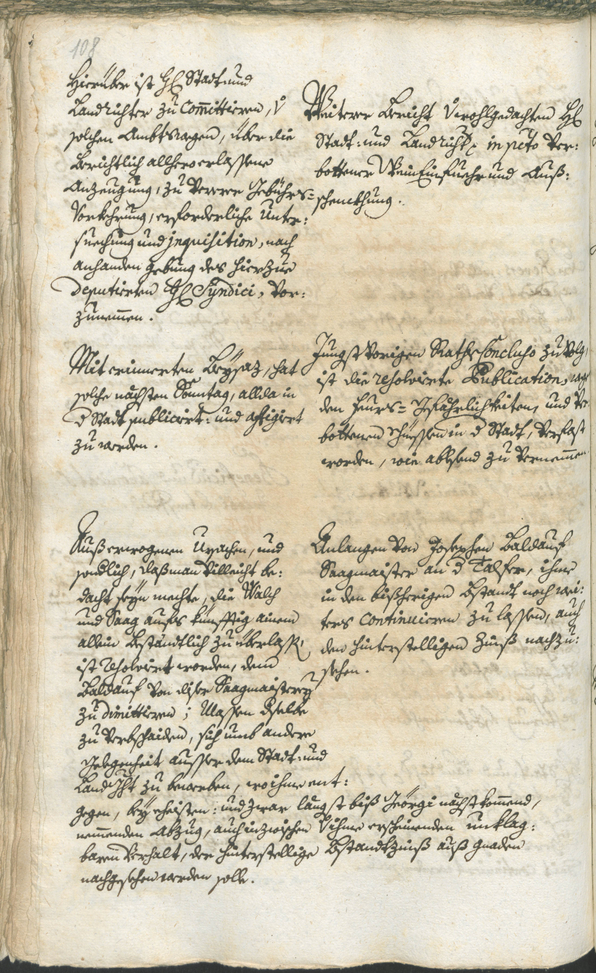 108
Hierüber ist H. Stadt- und
Landrichter zu Committieren, v
solchen Ambtswegen, über die
Berichtlich allhero erlassene
Anzeugung, zu Verrer Gebührs-
Vorkehrung, erforderliche Unter-
suechung und inquisition, nach
anhanden gebung des hierzue
Deputierten H. Syndici, Vor-
zunemmen.
Weiterer Bericht Wohlgedachten H.
Stadt- und Landricht. in pcto Ver-
bottener Wein Einfuehr und Auß-
schenkhung.
Mit erinnerten Beysaz, hat
solche nächsten Sonntag, allda in
d Stadt publiciert- und affigiert
zu werden.
Jüngst Vorigen Raths Concluso zu Volg
ist die resolvierte Publication, wegen
den Feuers-Gefährlichkeiten, und Ver-
bottenen schüessen in d Stadt, Verfast
worden, wie ablesend zu Vernemmen
Auß erwogenen Ursachen, und
sondlich, daß man Villeicht be-
dacht seyn mechte, die Walch
und Saag aufs künfftig ainem
allein Beständtlich zu überlass.
ist resolviert worden, dem
Baldauf von diser Saagmaisterey
zu dimittieren; Massen dselbe
zu Verbschaiden, sich umb andere
Gelegenheit ausser dem Stadt- und
Landght zu bewerben, wo ihme ent-
gegen, bey seinem- und zwar längst biß Geörgi nächstkomend,
nemmenden Abzug, auch inzwischen Vihme erscheinenden unklag-
baren Verhalt, der hinterstellige Bestandtzinß auß Gnaden
nachgesehen werden solle.
Anlangen Von Josephen Baldauf
Saagmaister an d Talfer, ihme
in den bißherigen Bestandt noch wei-
ters Continuieren zu lassen, auch
den hinterstelligen Zinß nachzu-
sehen.